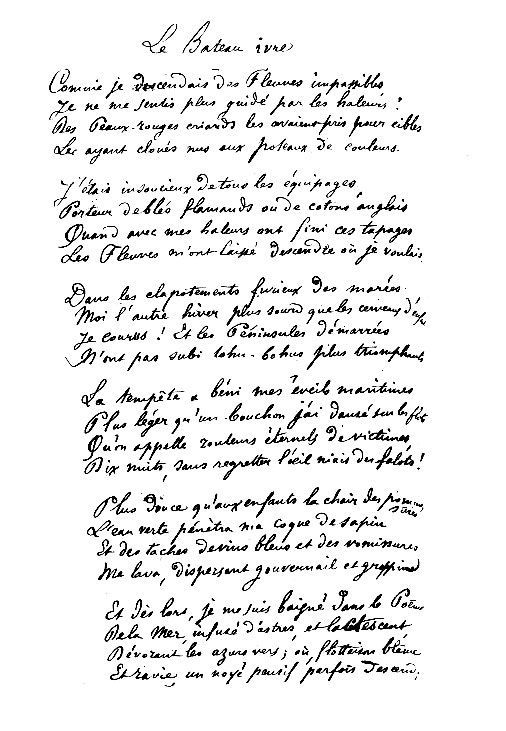 Le Bateau ivre
Comme je descendais des Fleuves impassibles
Je ne me sentis plus guidé par les haleurs !
Des Peaux-rouges criards les avaient pris pour cibles
Les ayant cloués nus aux poteaux de couleurs.
J'étais insoucieux de tous les équipages,
Porteur de blés flamands ou de cotons anglais
Quand avec mes haleurs ont fini ces tapages
Les Fleuves m'ont laissé descendre où je voulais.
Dans les clapotements furieux des marées
Moi l'autre hiver plus sourd que les cerveaux d'enfants
Je courus ! Et les Péninsules démarrées
N'ont pas subi tohu-bohus plus triomphants
La tempête a béni mes éveils maritimes
Plus léger qu'un bouchon j'ai dansé sur les flots
Qu'on appelle rouleurs éternels de victimes,
Dix nuits, sans regretter l'œil niais des falots !
Plus douce qu'aux enfants la chair des pommes sures
L'eau verte pénétra ma coque de sapin
Et des taches de vins bleus et des vomissures
Me lava, dispersant gouvernail et grappin
Et dès lors, je me suis baigné dans le Poème
De la Mer, infusé d'astres, et latescent
Dévorant les azurs verts ; où, flottaison blême
Et ravie, un noyé pensif parfois descend ;